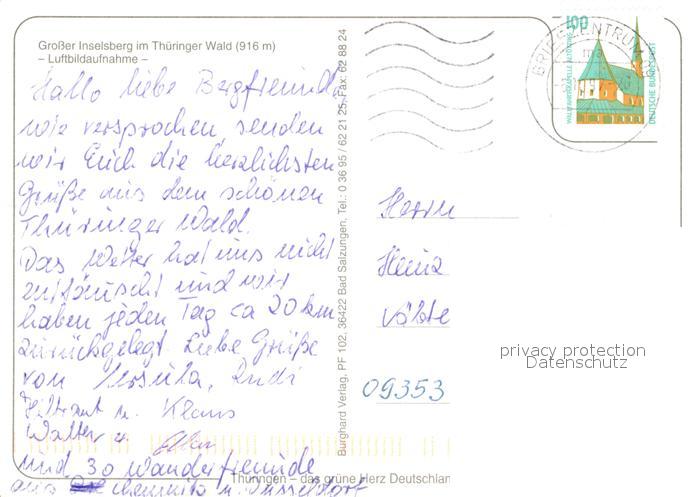 Großer Inselsberg im Thüringer Wald (916 m)
– Luftbildaufnahme –
Hallo liebe Bergfreunde,
wie versprochen, senden
wir Euch die herzlichsten
Grüße aus dem schönen
Thüringer Wald.
Das Wetter hat uns nicht
enttäuscht und wir
haben jeden Tag ca 20 km
zurückgelegt. Liebe Grüße
von Ursula, Rudi
Hiltraut u. Klaus
Walter u.
und 30 Wanderfreunde
aus Chemnitz u. Düsseldorf
Thüringen – das grüne Herz Deutschlan
Burghard Verlag, PF 102, 36422 Bad Salzungen, Tel.: 0 36 95 / 62 21 25, Fax: 62 88 24
BRIEFZENTRUM
100
WALLFAHRTSKAPELLE ALTÖTTING
DEUTSCHE BUNDESPOST
Herrn
Heinz
09353
privacy protection
Datenschutz